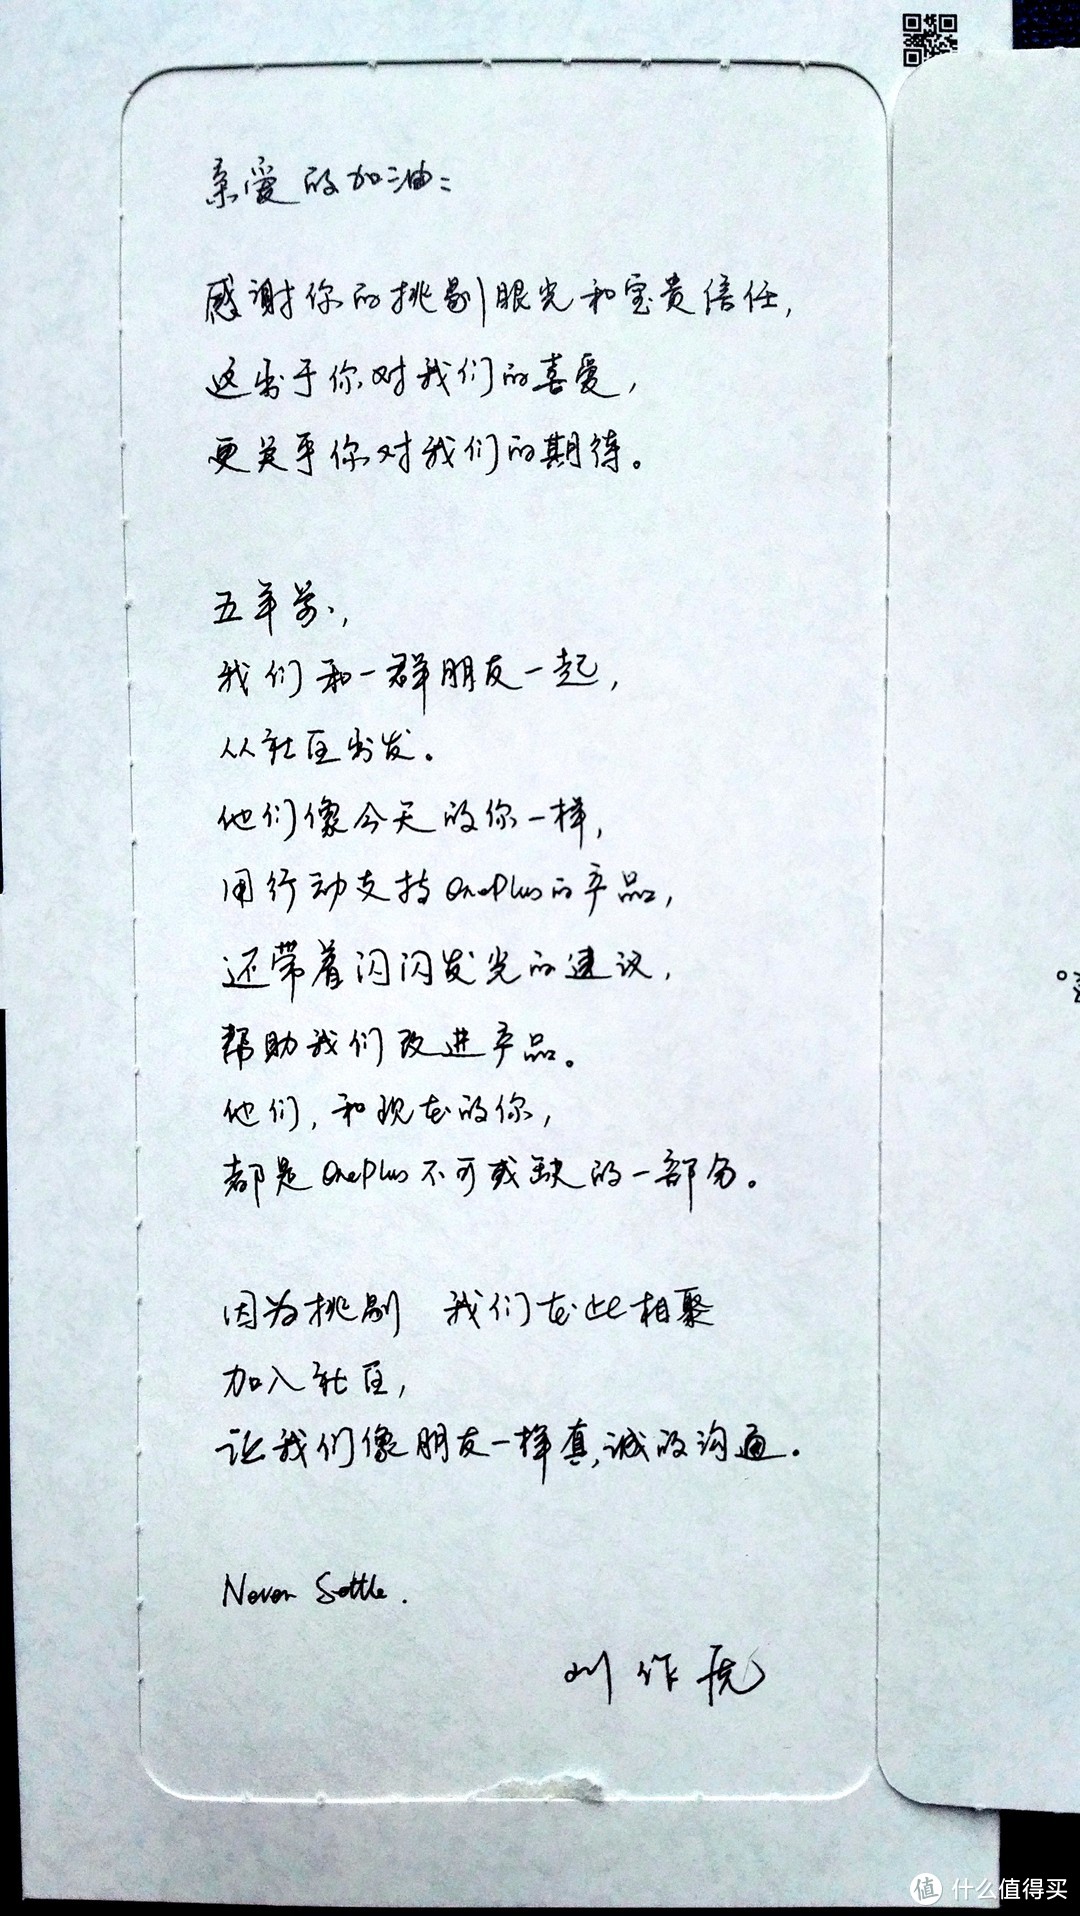 亲爱的加油：
感谢你的挑剔眼光和宝贵信任，
这出于你对我们的喜爱，
更关乎你对我们的期待。
五年前，
我们和一群朋友一起，
从社区出发。
他们像今天的你一样，
用行动支持OnePlus的产品，
还带着闪闪发光的建议，
帮助我们改进产品。
他们，和现在的你，
都是OnePlus不可或缺的一部分。
因为挑剔 我们在此相聚
加入社区，
让我们像朋友一样真诚的沟通。
Never Settle.
刘作虎
值 什么值得买